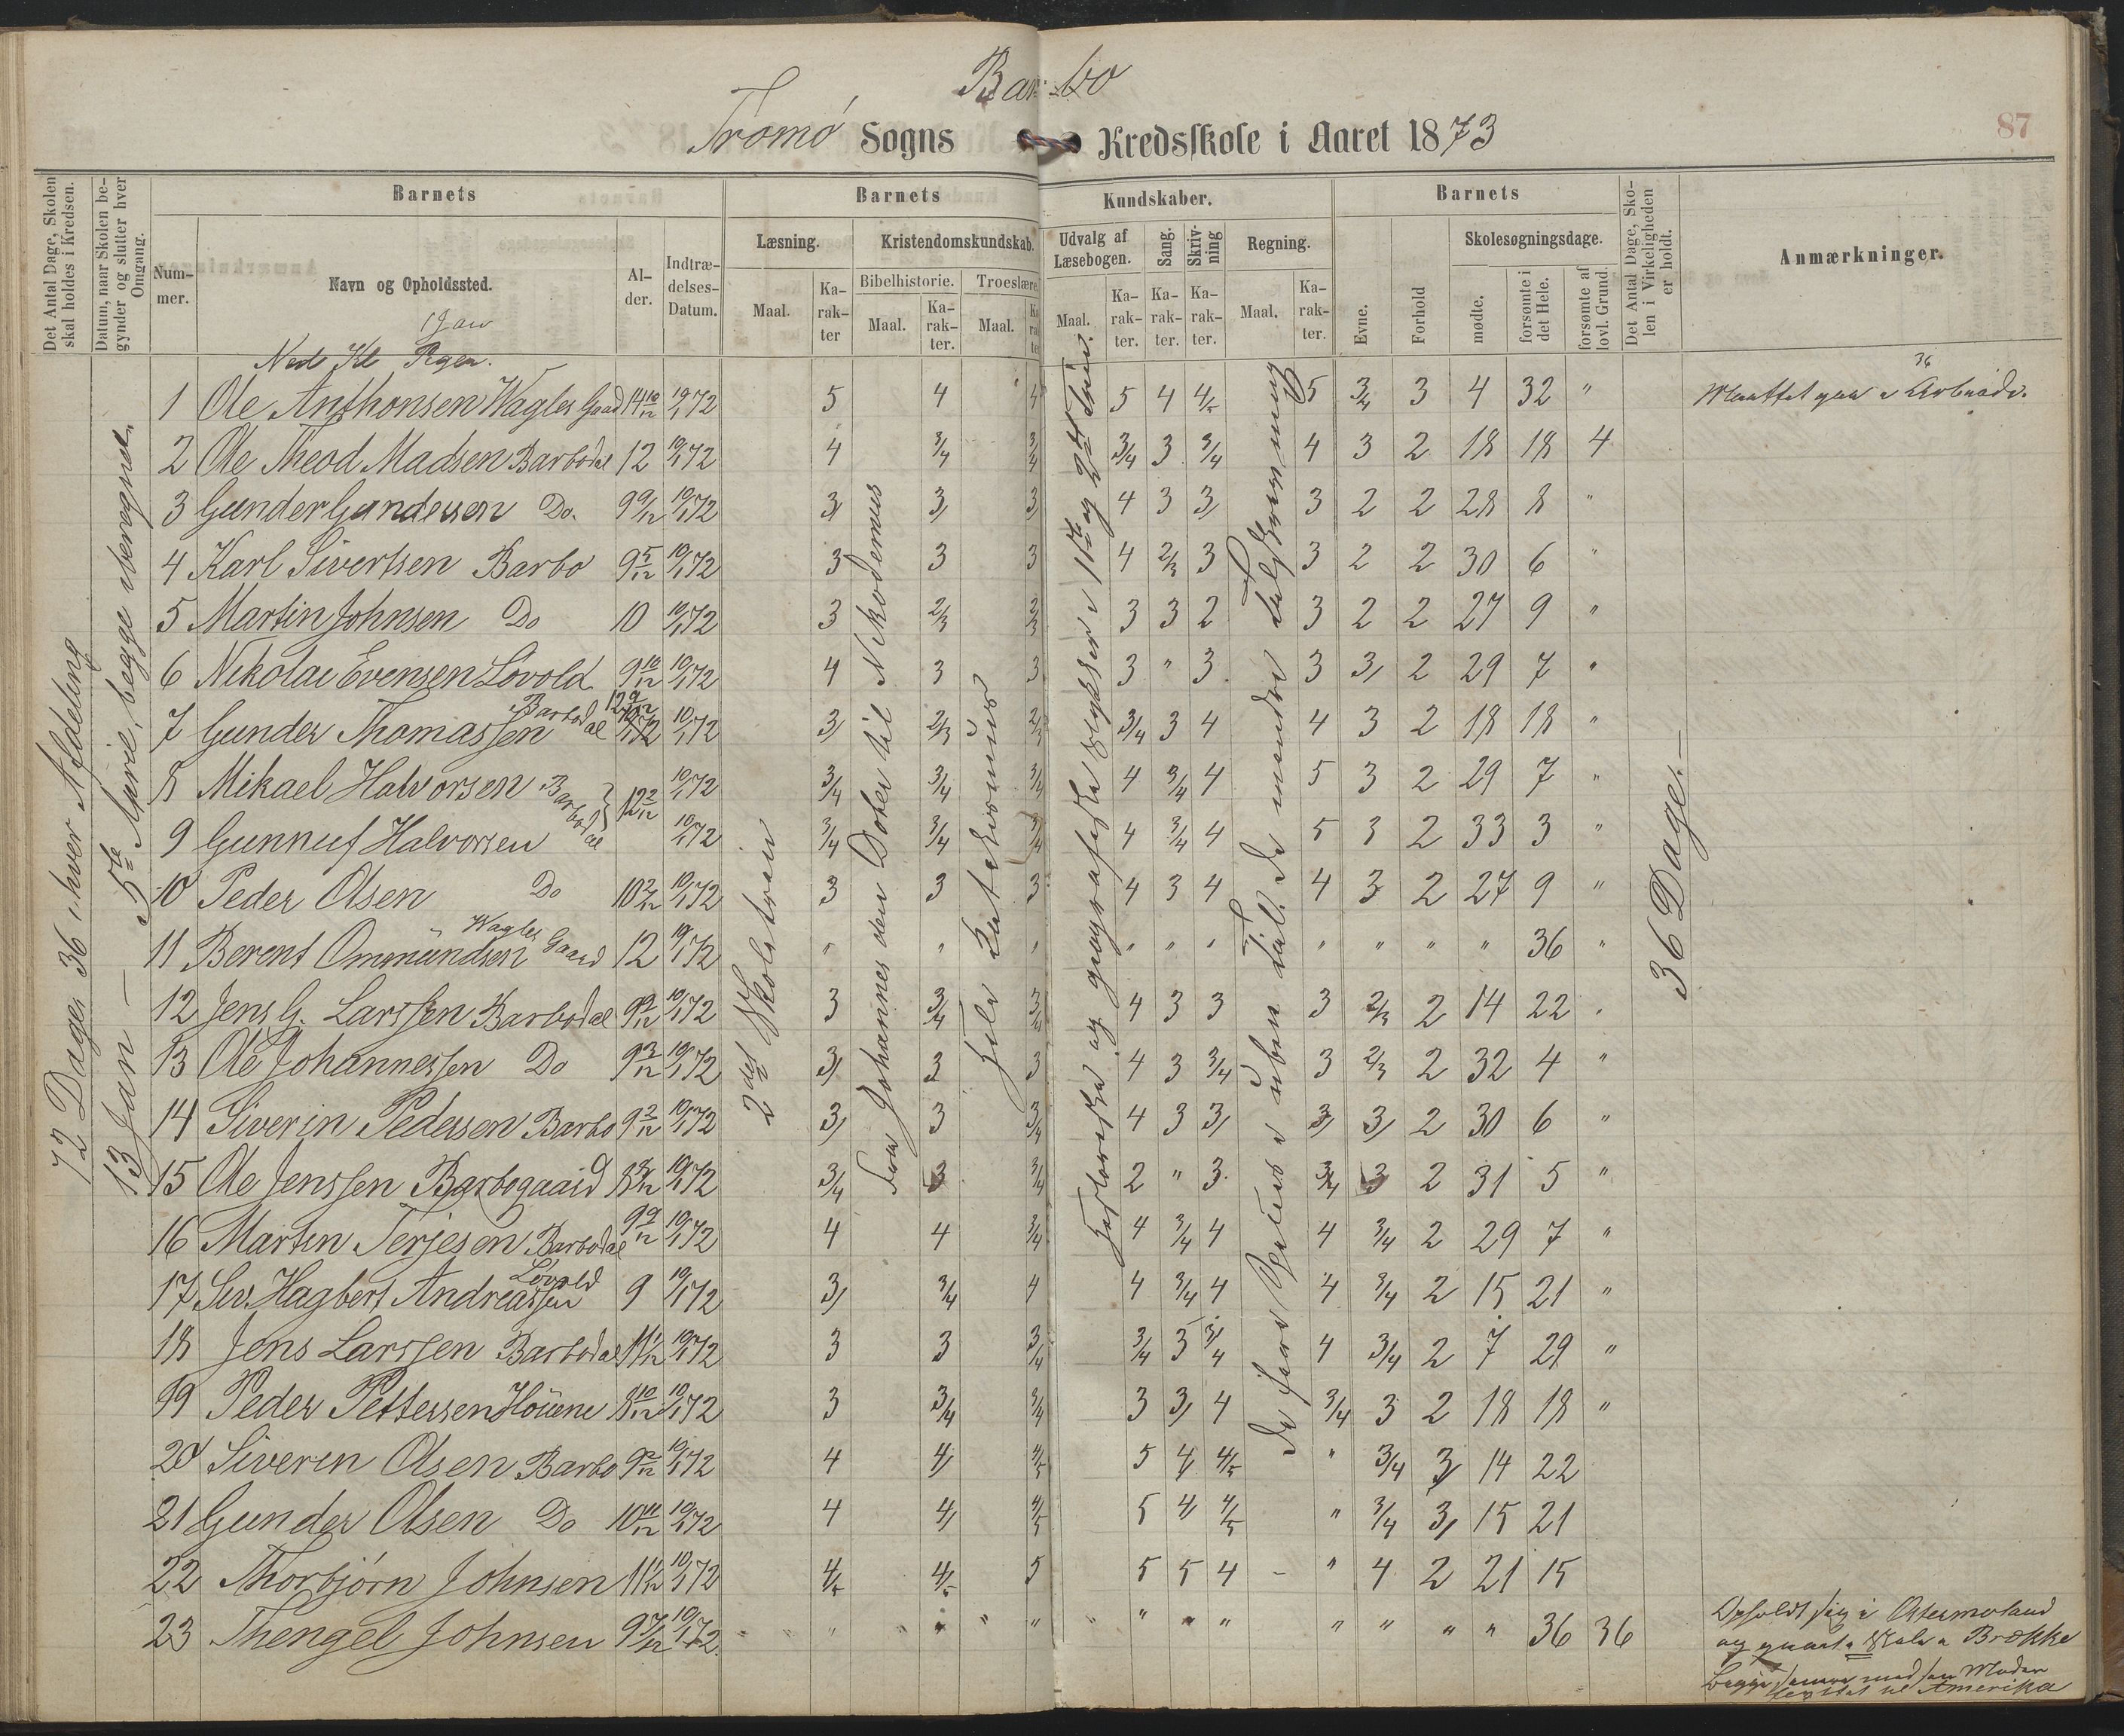 Barbo
Tromø Sogns Kredsskole i Aaret 1873
87
Det Antal Dage, Skolen skal holdes i Kredsen.
Datum, naar Skolen begynder og slutter hver Omgang.
Barnets
Nummer.
Navn og Opholdssted.
Alder.
Indtrædelses-Datum.
Barnets Kundskaber.
Læsning.
Maal.
Karakter
Kristendomskundskab.
Bibelhistorie.
Maal.
Karakter.
Troeslære.
Maal.
Udvalg af Læsebogen.
Maal.
Karakter.
Sang.
Karakter.
Skrivning
Karakter.
Regning.
Maal.
Karakter.
Barnets
Evne.
Forhold
Skolesøgningsdage.
mødte.
forsømte i det Hele.
forsømte af lovl. Grund.
Det Antal Dage, Skolen i Virkeligheden er holdt.
Anmærkninger.
72 Dage, 36 i hver Afdeling
13 Jan — 5te April, begge iberegnet.
2det Skoletrin
Fra Johannes den Døber til Nikodemus
hele Katekismus
historiske og geografiske Stykker i 1ste og 2det Trin.
36 Dage.—
Ned Kl Pigen.
1 Ole Anthonsen Wagles Gaard 14 10/12 10/1 72 5 4 4 5 4 4/5 5 3/4 3 4 32 "
2 Ole Theod Madsen Barbodal 12 10/1 72 4 3/4 3/4 3/4 3 3/4 4 3 2 18 18 4
3 Gunder Gundersen Do. 9 9/12 10/1 72 3/ 3/ 3/ 4 3 3/ 3 2 2 28 8 "
4 Karl Sivertsen Barbo 9 5/12 10/1 72 3 3 3 4 2/3 3 3 2 2 30 6 "
5 Martin Johnsen Do 10 10/1 72 3 2/3 2/3 3 3 2 3 2 2 27 9 "
6 Nikolai Evensen Løvold 9 10/12 10/1 72 4 3 3 3 " 3 3 3/ 2 29 7 "
7 Gunder Thomassen Barbodal 12 9/12 10/1 72 3/ 2/3 2/3 3/4 3 4 4 3 2 18 18 "
8 Mikael Halvorsen Barbodal 12 2/12 10/1 72 3/4 3/4 3/4 4 3/4 4 5 3 2 29 7 "
9 Gunnuf Halvorsen 10/1 72 3/4 3/4 3/4 4 3/4 4 5 3 2 33 3 "
10 Peder Olsen Do 10 2/12 10/1 72 3 3 3 4 3 4 4 3 2 27 9 "
11 Berent Ommundsen Wagles Gaard 12 10/1 72 " " " " " " " " " " 36 "
12 Jens G. Larssen Barbodal 9 9/12 10/1 72 3 3/4 3/4 4 3 3 3 2/3 2 14 22 "
13 Ole Johannessen Do 9 3/12 10/1 72 3/ 3 3 4 3 3/4 3 2/3 2 32 4 "
14 Siverin Pedersen Barbo 9 2/12 10/1 72 3/ 3 3/4 4 3 3/ 3/ 3/ 2 30 6 "
15 Ole Jenssen Barbogaard 10/1 72 3/4 3 3/4 2 " 3 3/4 3 2 31 5 "
16 Martin Terjesen Barbodal 9 9/12 10/1 72 4 4 3/4 4 3/4 4 4 3/4 2 29 7 "
17 Sev. Hagbert Andreassen Løvold 9 10/1 72 3/ 3/4 4 4 3/4 4 4 3/4 2 15 21 "
18 Jens Larssen Barbodal 11 1/12 10/1 72 3 3 3/4 3/4 3 3/4 4 3/4 2 7 29 "
19 Peder Pettersen Høuene 8 10/12 10/1 72 3 3/4 3/4 3 3/ 4 3/4 3 2 18 18 "
20 Siverin Olsen Barbo 10/1 72 4 4/ 4/5 5 4/ 4/5 " 3/4 3/ 14 22
21 Gunder Olsen Do 10 11/12 10/1 72 4 4/ 4/5 5 4/ 4/5 " 3/4 3/ 15 21
22 Thorbjørn Johnsen 10/1 72 4/5 4/5 5 5 5 4 - " 4 2 21 15
23 Thengel Johnsen 9 7/12 10/1 72 " " " " " " " " " " " " 36 36
36
Maattet gaa i Arbeide.
Opholdt sig i Østermoland
og gaaet i Skole i Brække
Begge med Moder
til Amerika